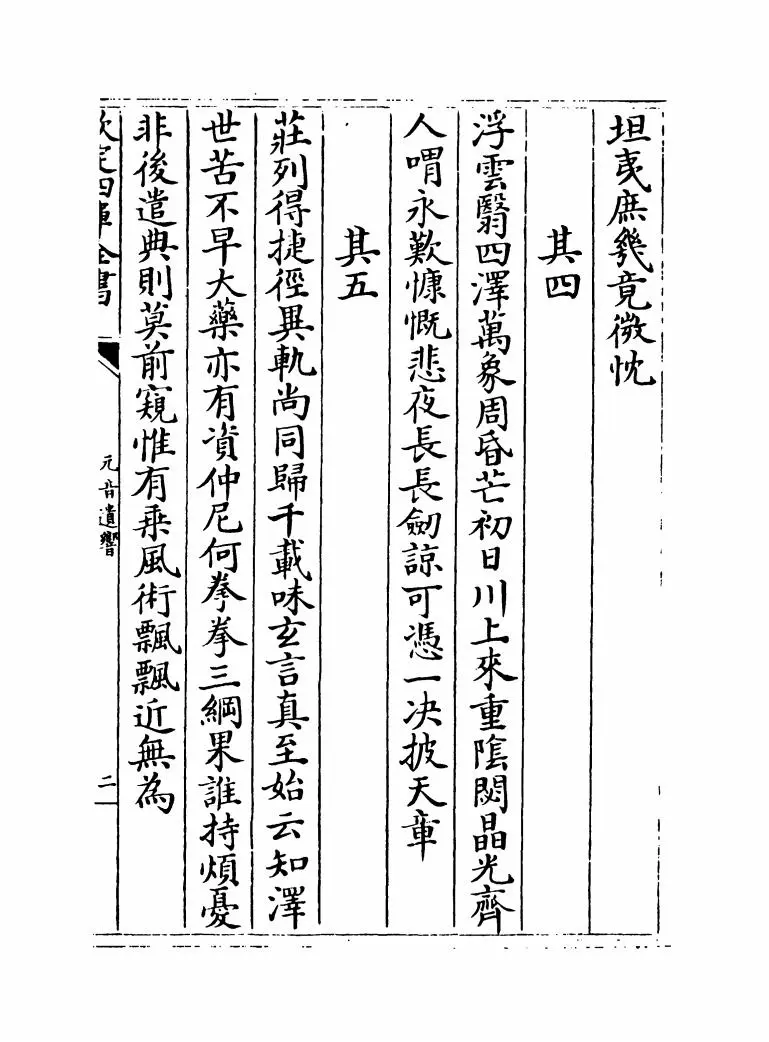 坦夷庶幾竟微忱
其四
浮雲翳四澤萬象周昏芒初日川上來重陰閟晶光齊
人喟永歎慷慨悲夜長長劒諒可憑一决披天章
其五
莊列得捷徑異軌尚同歸千載味玄言真至始云知澤
世苦不早大藥亦有資仲尼何拳拳三綱果誰持煩憂
非後遣典則莫前窺惟有乘風術飄飄近無為
欽定四庫全書
元音遺響
二